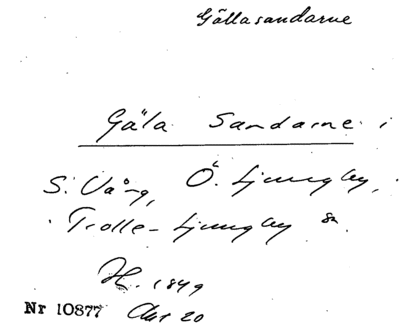 Gällasandarne
Gäla Sandarne i
S. Vång, Ö. Ljungby,
Trolle-Ljungby sn.
H. 1849
Nr 10877 Akt 20